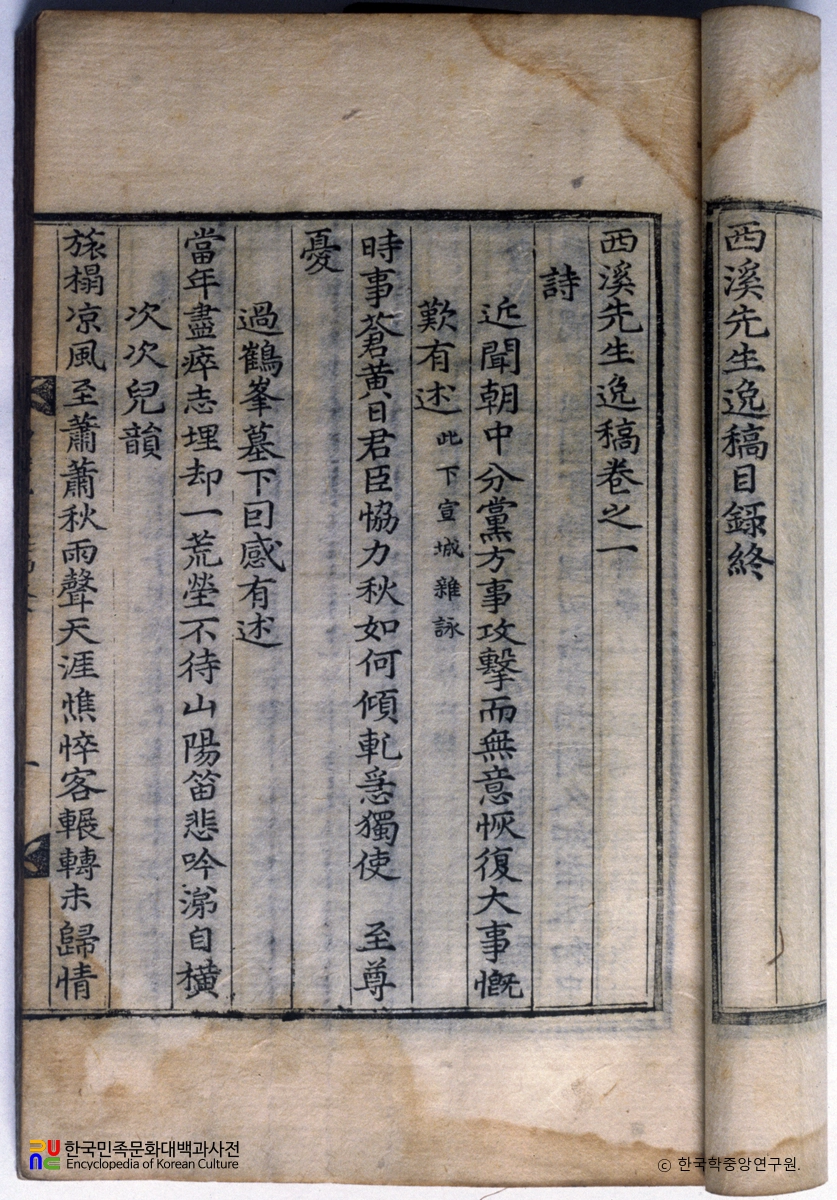 西溪先生逸稿目錄終
西溪先生逸稿卷之一
詩
近聞朝中分黨方事攻擊而無意恢復大事慨
歎有述 此下宣城雜詠
時事蒼黃日君臣恊力秋如何傾軋急獨使 至尊
憂
過鶴峯墓下囙感有述
當年盡瘁志埋却一荒塋不待山陽笛悲吟涕自橫
次次兒韻
旅榻凉風至蕭蕭秋雨聲天涯憔悴客輾轉未歸情
한국민족문화대백과사전
Encyclopedia of Korean Culture
© 한국학중앙연구원.